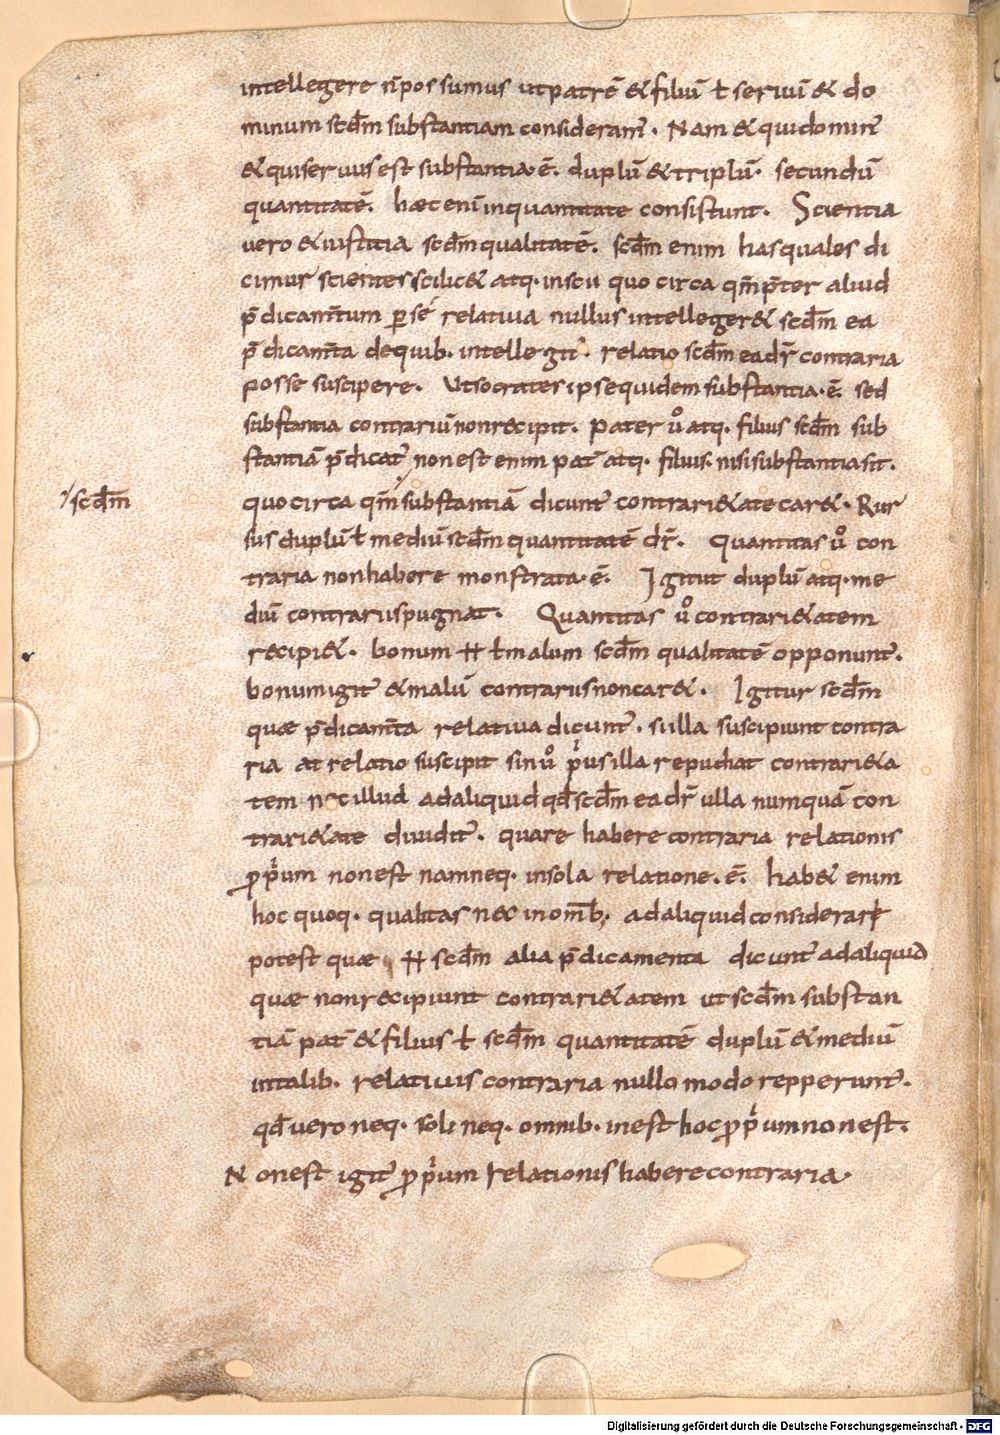 intellegere n̄possumus utpatrē & filiū ł seruū & do
minum scd̄m substantiam considerant̄. Nam & quidominꝰ
& quiseruus est substantia·ē. duplū & triplū. secundū
quantitatē. hæc eni inquantitate consistunt. Scientia
uero & iustitia scd̄m qualitatē. scd̄m enim has quales di
cimur scientes scilic& atq· iusti quo circa qm̄ p̄ter aliud
p̄dicam̄tum ꝑsé relatiua nullus intelleger& scd̄m ea
p̄dicam̄ta dequib· intellegit̄. relatio scd̄m ea dr̄ contraria
posse suscipere. Utsocrates ipse quidem substantia·ē. sed
substantia contrariū non recipit. Pater uͦ atq· filius scd̄m sub
stantiā p̄dicat̄ non est enim pat̄ atq· filius. nisi substantia sit.
⸓ scd̄m
quo circa qm̄ ⸓ substantiā dicunt̄ contrari&ate car&. Rur
sus duplū ł mediū scd̄m quantitatē dr̄. Quantitas uͦ con
traria non habere monstrata·ē. Igitur duplū atq· me
diū contrariis pugnat. Quantitas uͦ contrari&atem
recipi&. bonum ħ ł malum scd̄m qualitatē opponunt̄.
bonum igit̄ & malū contrariis non car&. Igitur scd̄m
quæ p̄dicam̄ta relatiua dicunt̄. si illa suscipiunt contra
ria at relatio suscipit sin uͦ pͥus illa repudiat contrari&a
tem nec illud ad aliquid qd̄ scd̄m ea dr̄ ulla numquā con
trari&ate diuidit̄. quare habere contraria relationis
ꝓpͥum non est nam neq· in sola relatione·ē. hab& enim
hoc quoq· qualitas nec in omīb; ad aliquid considerare
potest quæ ħ scd̄m alia p̄dicamenta dicunt̄ ad aliquid
quæ non recipiunt contrari&atem ut scd̄m substan
tiā pat̄ & filius ł scd̄m quantitatē duplū & mediū
in talib· relatiuis contraria nullo modo repperiunt̄.
qd̄ uero neq· soli neq· omnib· inest hoc ꝓpͥum non est.
Non est igit̄ ꝓpͥum relationis habere contraria.
Digitalisierung gefördert durch die Deutsche Forschungsgemeinschaft - DFG